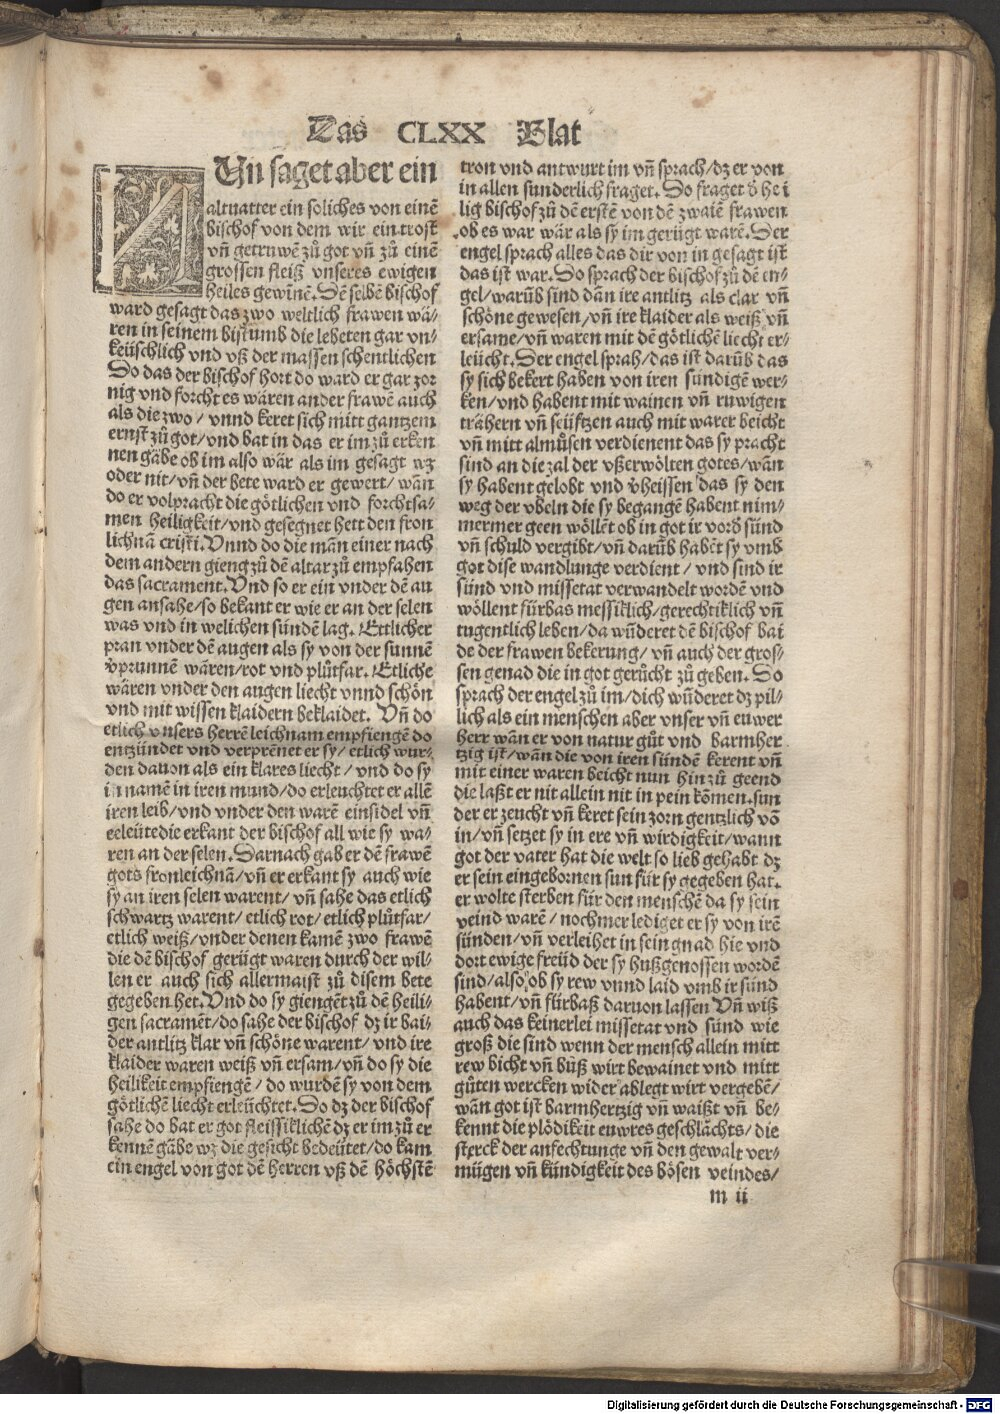 Das CLXX Blat
NUn saget aber ein
altuatter ein soliches von einē
bischof von dem wir ein trost
vñ getruwē zů got vñ zů einē
grossen fleiß vnseres ewigen
heiles gewīnē. Dē selbē bischof
ward gesagt das zwo weltlich frawen wä-
ren in seinem bistumb die lebeten gar vn-
keüschlich vnd vß der massen schentlichen
Do das der bischof hort do ward er gar zor
nig vnd forcht es wären ander frawē auch
als die zwo/ vnnd keret sich mitt gantzem
ernst zů got/vnd bat in das er im zů erken
nen gäbe ob im also wär als im gesagt wz
oder nit/vñ der bete ward er gewert/wān
do er volpracht die götlichen vnd forchtsa-
men heiligkeit/vnd gesegnet hett den fron
lichnā cristi. Vnnd do die mān einer nach
dem andern gieng zů dē altar zů empfahen
das sacrament. Vnd so er ein vnder dē au
gen ansahe/so bekant er wie er an der selen
was vnd in welichen sündē lag. Ettlicher
pran vnder dē augen als sy von der sunnē
v̄prunnē wären/rot vnd plůtfar. Etliche
wären vnder den augen liecht vnnd schön
vnd mit wissen klaidern beklaidet. Vñ do
etlich vnsers herrē leichnam empfiengē do
entzündet vnd verprēnet er sy/etlich wur-
den dauon als ein klares liecht/ vnd do sy
in namē in iren mund/do erleuchtet er allē
iren leib/vnd vnder den warē einsidel vñ
eeleüte die erkant der bischof all wie sy wa-
ren an der selen. Darnach gab er dē frawē
gots fronleichnā/vñ er erkant sy auch wie
sy an iren selen warent/ vñ sahe das etlich
schwartz warent/etlich rot/etlich plůtfar/
etlich weiß/vnder denen kamē zwo frawē
die dē bischof gerügt waren durch der wil-
len er auch sich allermaist zů disem bete
gegeben het. Vnd do sy giengēt zů dē heili-
gen sacramēt/do sahe der bischof dz ir bai-
der antlitz klar vñ schöne warent/ vnd ire
klaider waren weiß vñ ersam/vñ do sy die
heilikeit empfiengē/ do wurdē sy von dem
götlichē liecht erleüchtet. Do dz der bischof
sahe do bat er got fleissiklichē dz er im zů er
kennē gäbe wz die gesicht bedeütet/do kam
ein engel von got dē herren vß dē höchstē
tron vnd antwurt im vñ sprach/dz er von
in allen sunderlich fraget. Do fraget d̄ hei
lig bischof zů dē erstē von dē zwaiē frawen
ob es war wär als sy im gerügt warē. Der
engel sprach alles das dir von in gesagt ist
das ist war. Do sprach der bischof zů dē en-
gel/warūb sind dān ire antlitz als clar vñ
schöne gewesen/vñ ire klaider als weiß vñ
ersame/vñ waren mit dē götlichē liecht er-
leücht. Der engel sprah/das ist darūb das
sy sich bekert haben von iren sündigē wer-
ken/vnd habent mit wainen vñ ruwigen
trähern vñ seüftzen auch mit warer beicht
vñ mitt almůsen verdienent das sy pracht
sind an die zal der vßerwölten gotes/wān
sy habent gelobt vnd v̄heissen das sy den
weg der vbeln die sy begangē habent nim-
mermer geen wöllēt ob in got ir vord̄ sünd
vñ schuld vergibt/vñ darūb habēt sy vmb
got dise wandlunge verdient/ vnd sind ir
sünd vnd missetat verwandelt wordē vnd
wöllent fürbas messiklich/gerechtiklich vñ
tugentlich leben/da wūderet dē bischof bai
de der frawen bekerung/ vñ auch der gros-
sen genad die in got gerücht zů geben. Do
sprach der engel zů im/dich wūderet dz pil-
lich als ein menschen aber vnser vñ euwer
herr wān er von natur gůt vnd barmher
tzig ist/wān die von iren sündē kerent vñ
mit einer waren beicht nun hin zů geend
die laßt er nit allein nit in pein kōmen. sun
der er zeucht vñ keret sein zorn gentzlich vō
in/vñ setzet sy in ere vñ wirdigkeit/wann
got der vater hat die welt so lieb gehabt dz
er sein eingebornen sun für sy gegeben hat.
er wolte sterben für den menschē da sy sein
veind warē/ nochmer lediget er sy von irē
sünden/vñ verleihet in sein gnad hie vnd
dort ewige freüd der sy hußgenossen wordē
sind/also ob sy rew vnnd laid vmb ir sünd
habent/vñ fürbaß daruon lassen Vñ wiß
auch das keinerlei missetat vnd sünd wie
groß die sind wenn der mensch allein mitt
rew bicht vñ bůß wirt bewainet vnd mitt
gůten wercken wider ablegt wirt vergebē/
wān got ist barmhertzig vñ waißt vñ be-
kennt die plödikeit euwres geschlächts/die
sterck der anfechtunge vñ den gewalt ver-
mügen vñ kündigkeit des bösen veindes/
m ii
Digitalisierung gefördert durch die Deutsche Forschungsgemeinschaft - DFG